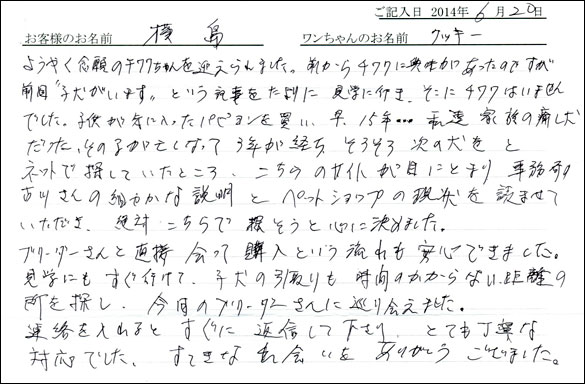 ご記入日 2014年 6月20日
お客様のお名前 横島 ワンちゃんのお名前 クッキー
ようやく念願のチワワちゃんを迎えられました。前からチワワに興味があったのですが
前回"子犬がいます"という記事をたよりに見学に行き、そこにチワワはいません
でした。子供が気に入ったパピヨンを買い、早、15年… 私達家族の癒し犬
だった、その子が亡くなって3年が経ち そろそろ次の犬をと
ネットで探していたところ、こちらのサイトが目にとまり 事務局
ありさんの細やかな説明とペットショップの現状を読ませて
いただき、絶対こちらで探そうと心に決めました。
ブリーダーさんと直接会って購入という流れも安心できました。
見学にもすぐ行けて、子犬の引取りも時間のかからない距離の
所を探し、今回のブリーダーさんに巡り会えました。
連絡を入れるとすぐに返信して下さり、とても丁寧な
対応でした、すてきな出会いをありがとうございました。